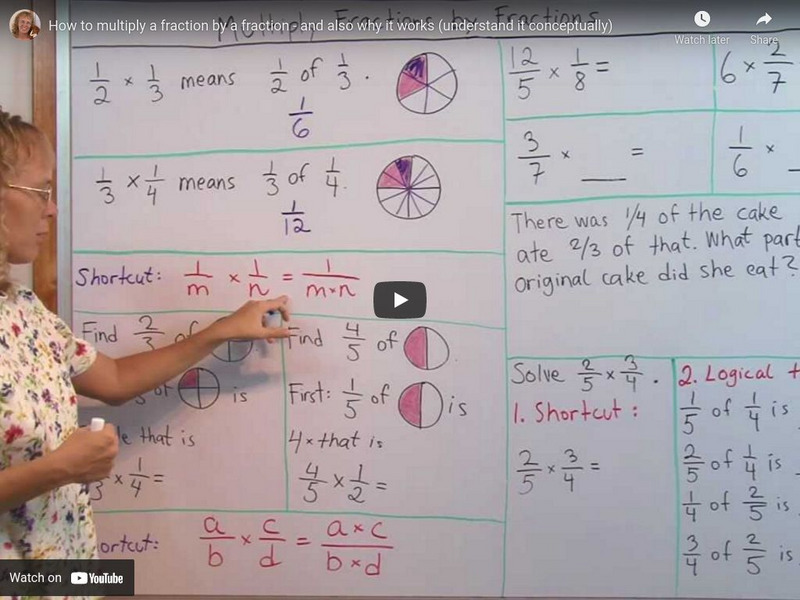 How to multiply a fraction by a fraction - and also why it works (understand it conceptually)
Watch later
Share
Multiply Fractions by Fractions
1/2 × 1/3 means 1/2 of 1/3.
1/6
1/3 × 1/4 means 1/3 of 1/4.
1/12
Shortcut: 1/m × 1/n = 1/m×n
Find 2/3 of
of is
that is
× 1/4 =
Find 4/5 of .
First: 1/5 of is
4 × that is
4/5 × 1/2 =
a/b × c/d = a×c/b×d
12/5 × 1/8 =
6 × 2/7
3/7 × ___ =
1/6 ×
There was 1/4 of the cake
ate 2/3 of that. What part
original cake did she eat?
Solve 2/5 × 3/4.
1. Shortcut:
2/5 × 3/4 =
2. Logical
1/5 of 1/4 is
2/5 of 1/4 is
1/4 of 2/5 is
3/4 of 2/5 is
Watch on YouTube